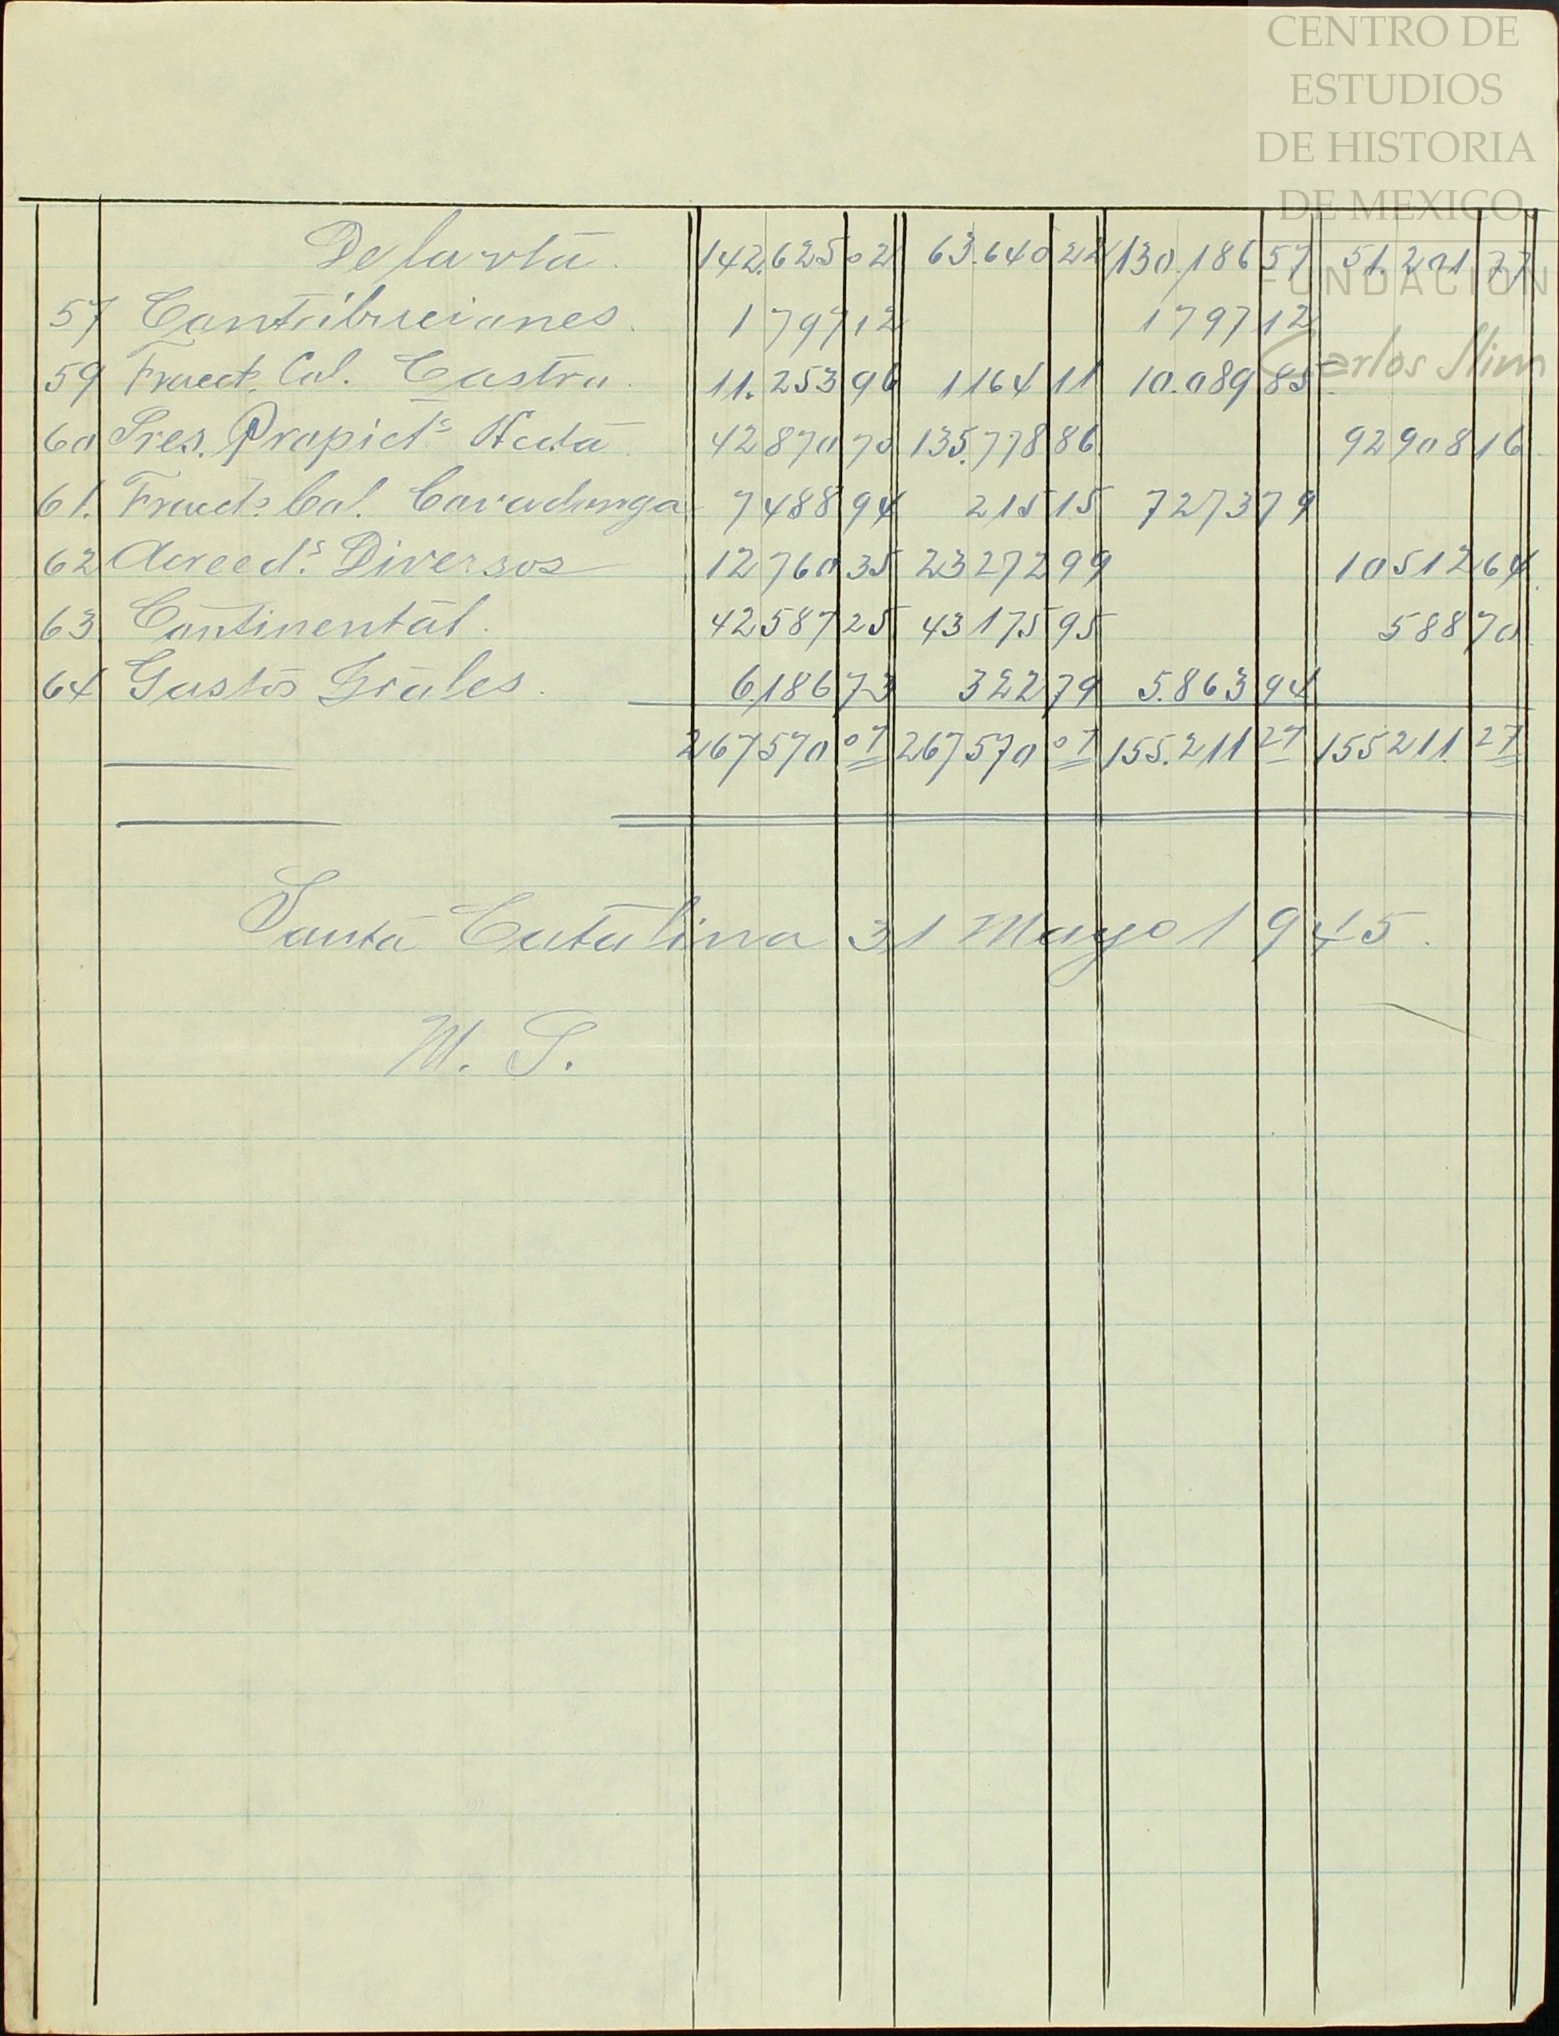 CENTRO DE
ESTUDIOS
DE HISTORIA
DE MEXICO
FUNDACIÓN
Carlos Slim
De la vta. 142.625 02 63.640 22 130.186 57 51.201 77
57 Contribuciones. 1797 12 1797 12
59 Fracct. Col. Castro. 11.253 96 1164 11 10.089 85
60 Pres. Propiets Hcda 42870 70 135.778 86 92908 16
61. Fracct. Col. Covadonga 7488 94 215 15 7273 79
62 Acreeds. Diversos 12760 35 23272 99 10512 64
63 Continental. 42587 25 43175 95 588 70
64 Gastos Grales. 6186 73 322 79 5.863 94
267570 07 267570 07 155.211 27 155211. 27
Santa Catalina 31 Mayo 1945.
M. S.